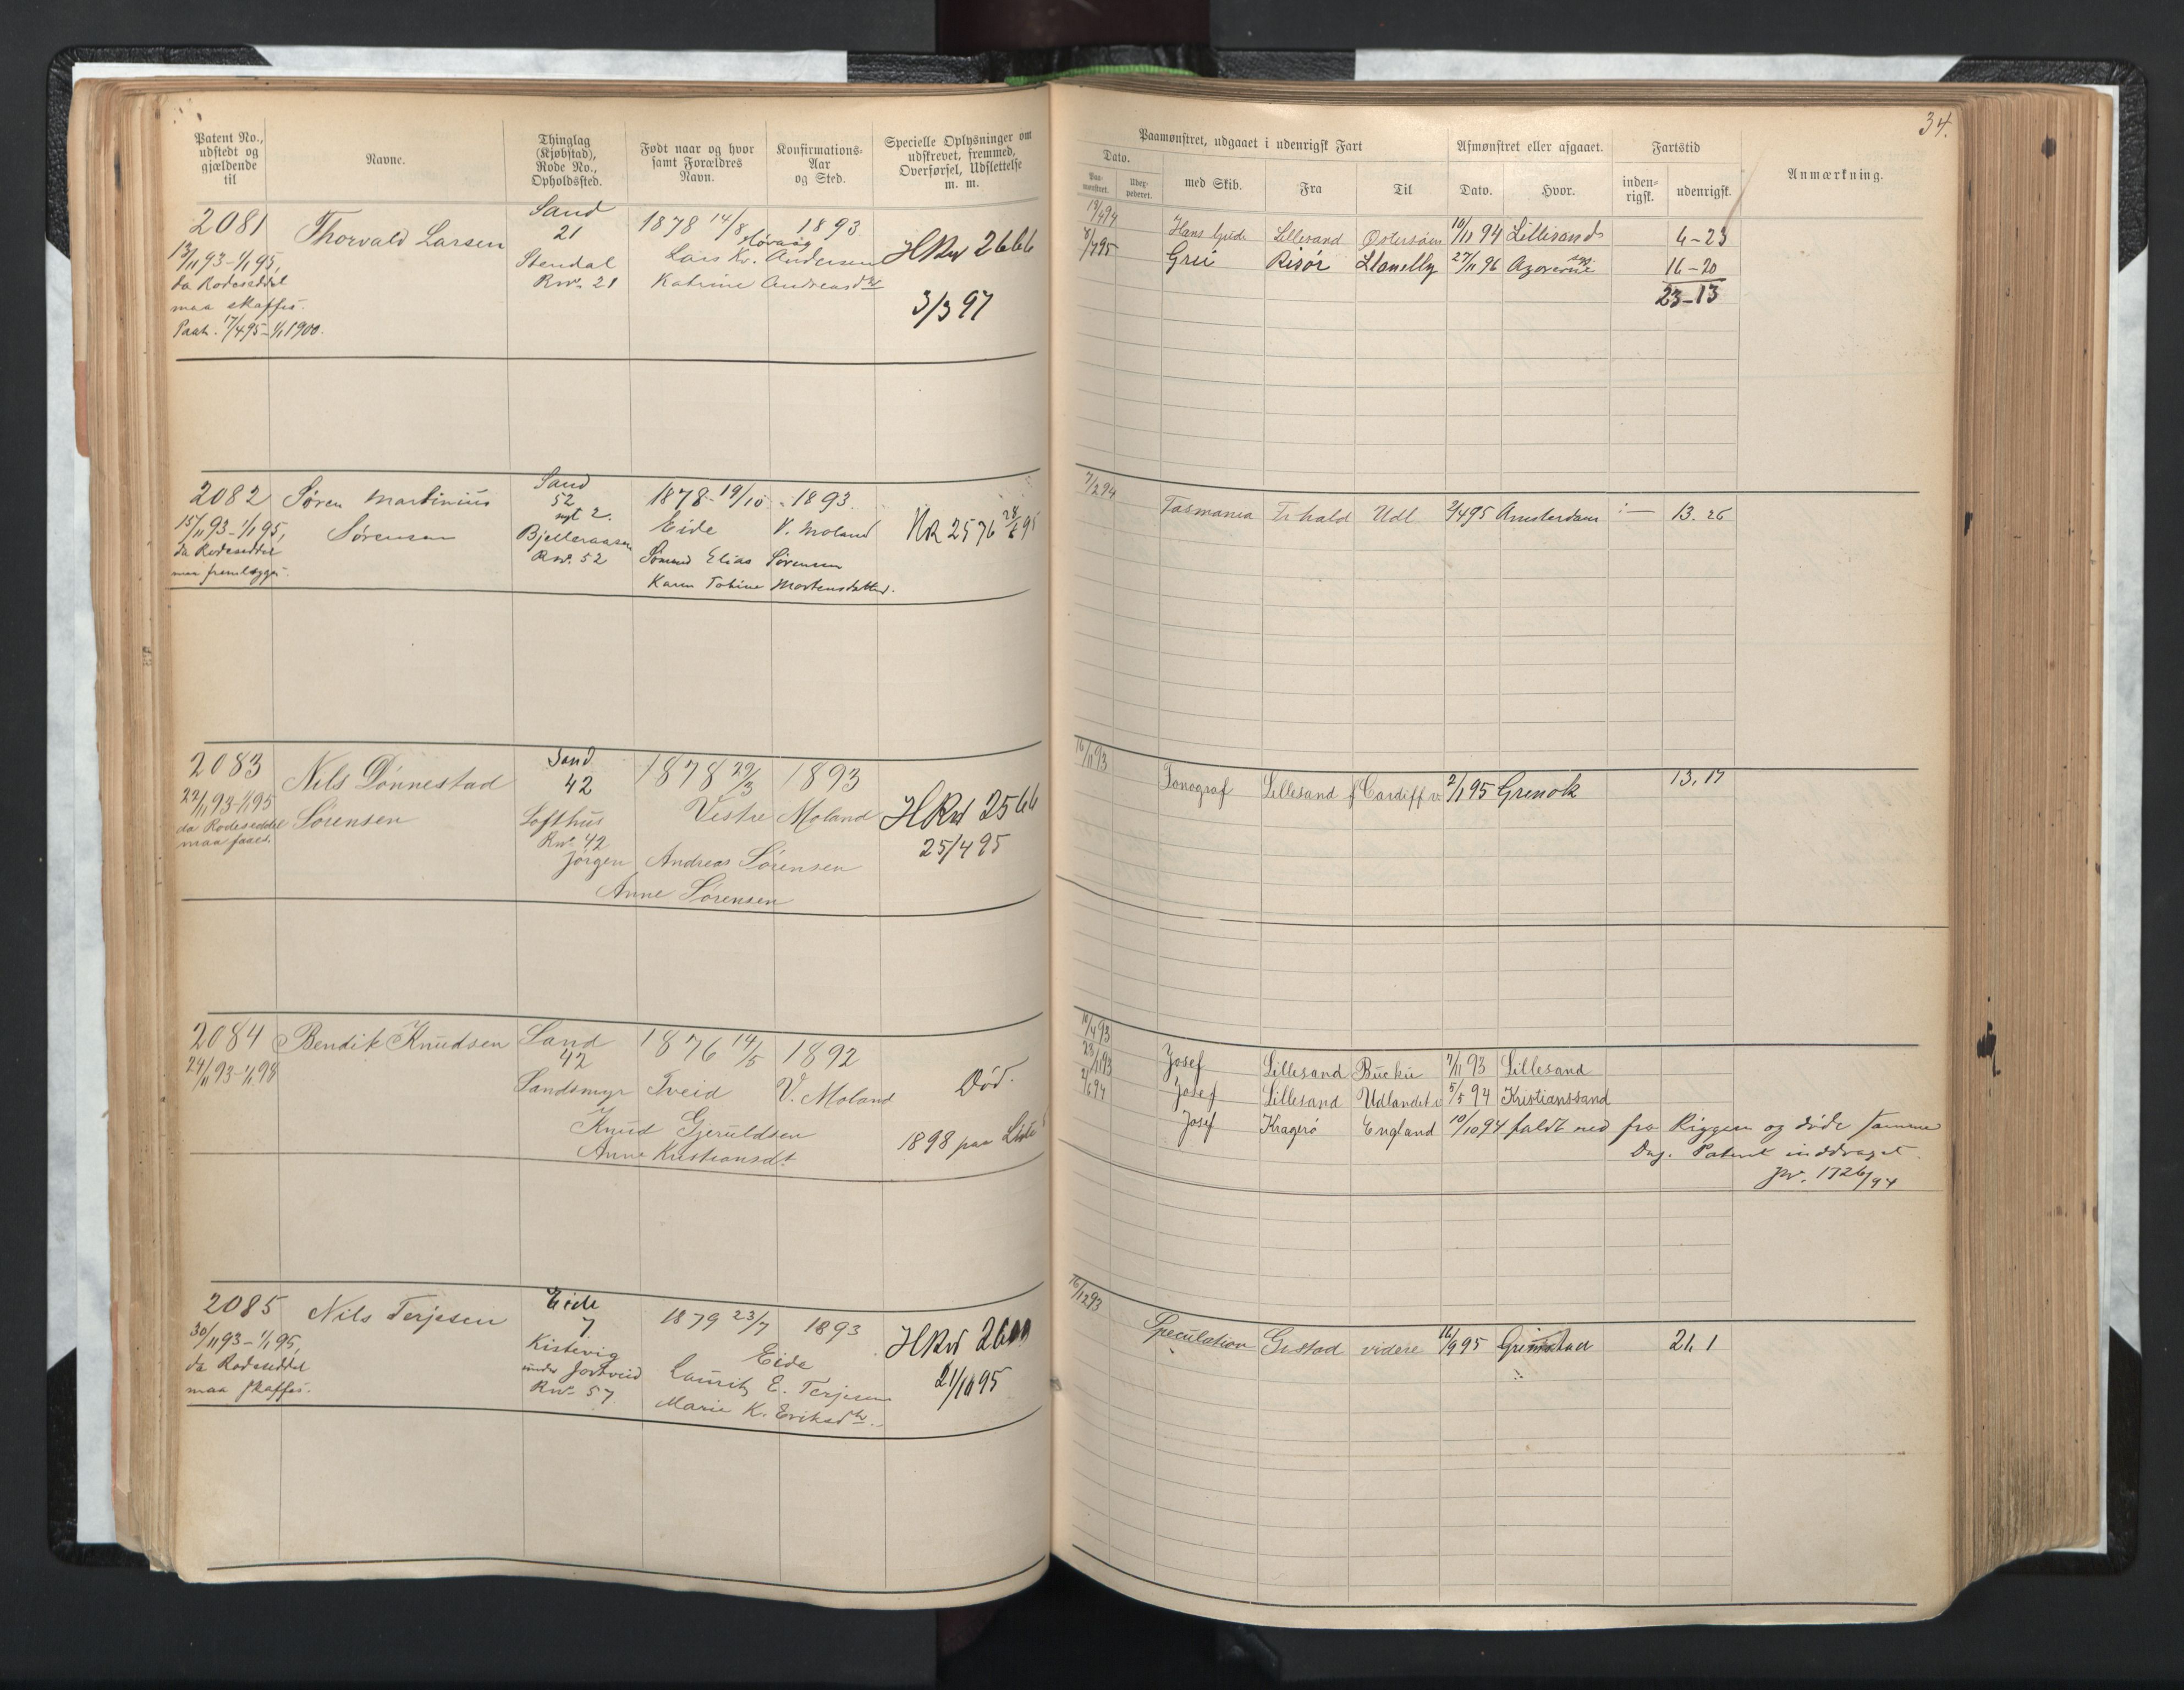 34.
Patent No., udstedt og gjældende til
Navne.
Thinglag (Kjøbstad), Rode No., Opholdssted.
Født naar og hvor samt Forældres Navn.
Konfirmations-Aar og Sted.
Specielle Oplysninger om udskrevet, fremmed, Overførsel, Udslettelse m. m.
Paamønstret, udgaaet i udenrigsk Fart
Dato.
Paa-mønstret.
med Skib.
Fra
Til
Afmønstret eller afgaaet.
Dato.
Hvor.
Fartstid
inden-rigsk.
udenrigsk.
Anmærkning.
2081 Thorvald Larsen
13/11 93 - 1/1 95,
da Rodeseddel
maa skaffes.
Paat. 17/4 95 - 1/1 1900.
Sand
21
Stendal
Rno. 21
1878 14/8 1893
Høvaag
Lars Kr. Andersen
Katrine Andreasdtr
HRno 2666
3/3 97
19/4 94 Hans Gude Lillesand Østersøen 10/11 94 Lillesand 6-23
8/7 95 Gru Risør Llanelly 27/11 96 16-20
23-13
2082 Søren Martinius
Sørensen
15/11 93 - 1/1 95,
da Rodeseddel
maa fremlægges.
Sand
52
nyt 2.
Bjelleraasen
Rno. 52
1878 - 19/10 - 1893.
Eide V. Moland
Elias Sørensen
Karen Tobine Mortensdatter.
HR 2576 28/6 95
7/2 94 Tasmania Frhald Udl. 2/4 95 Amsterdam - 13. 26
2083 Nils Dønnestad
Sørensen
22/11 93 - 1/1 95
da Rodeseddel
maa faaes.
Sand
42
Lofthus
Rno. 42
1878 29/3 1893
Vestre Moland
Jørgen Andreas Sørensen
Anne Sørensen
HRno 2566
25/4 95
16/11 93 Fonograf Lillesand f Cardiff v. 2/1 95 Grenok 13. 17
2084 Bendik Knudsen
24/11 93 - 1/1 98
Sand
42
Sandsmyr
1876 14/5 1892
Tveid V. Moland
Knud Gjeruldsen
Anne Kristiansdt.
Død.
1898 paa Liste
10/4 93 Josef Lillesand 7/11 93 Lillesand
23/11 93 Josef Lillesand Udlandet 5/5 94 Kristianssand
2/6 94 Josef Kragerø England 10/10 94 faldt ned fra Riggen og døde samme
Dag. Patent inddraget.
Jno. 1726/94
2085 Nils Terjesen
30/11 93 - 1/1 95,
da Rodeseddel
maa skaffes.
Eide
7
Kistevig
under Jortveid
Rno. 57
1879 23/7 1893
Eide
Laurits E. Terjesen
Marie K. Eriksdtr.
HRno
21/10 95
16/12 93 Speculation Grstad videre 16/9 95 Grimstad 21. 1